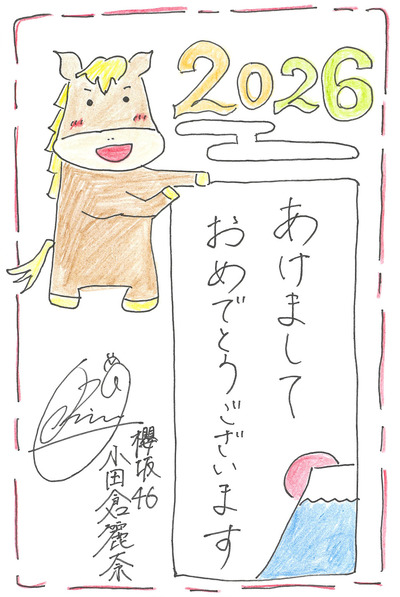 2026
あけまして
おめでとうございます
櫻坂46
小田倉麗奈